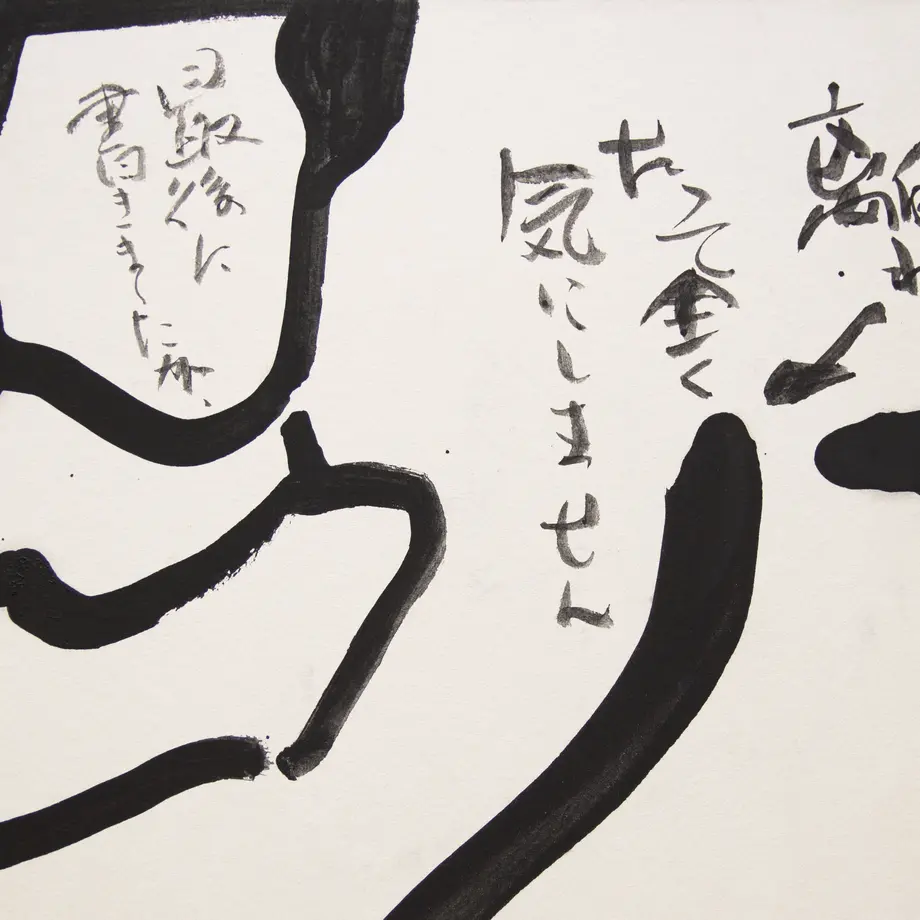 離れ
たって全く
気にしません
最後に
書きましたが、